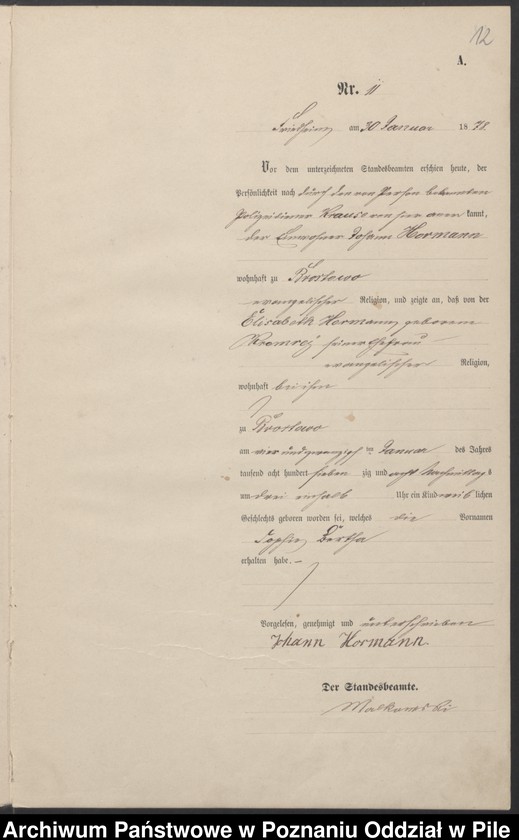 12
A.
Nr. 11
Friedheim am 30 Januar 1878.
Vor dem unterzeichneten Standesbeamten erschien heute, der
Persönlichkeit nach durch den von Person bekannten
Polizeidiener Krause von hier aner kannt,
der Einwohner Johann Hermann
wohnhaft zu Brostowo
evangelischer Religion, und zeigte an, daß von der
Elisabeth Hermann geborene
seiner Ehefrau
evangelischer Religion,
wohnhaft bei ihm
zu Brostowo
am vier und zwanzigsten Januar des Jahres
tausend acht hundert sieben zig und acht Nachmittags
um drei einhalb Uhr ein Kind weib lichen
Geschlechts geboren worden sei, welches die Vornamen
Sophie Bertha
erhalten habe. —
Vorgelesen, genehmigt und unterschrieben
Johann Hermann
Der Standesbeamte.
Malkowski
Archiwum Państwowe w Poznaniu Oddział w Pile